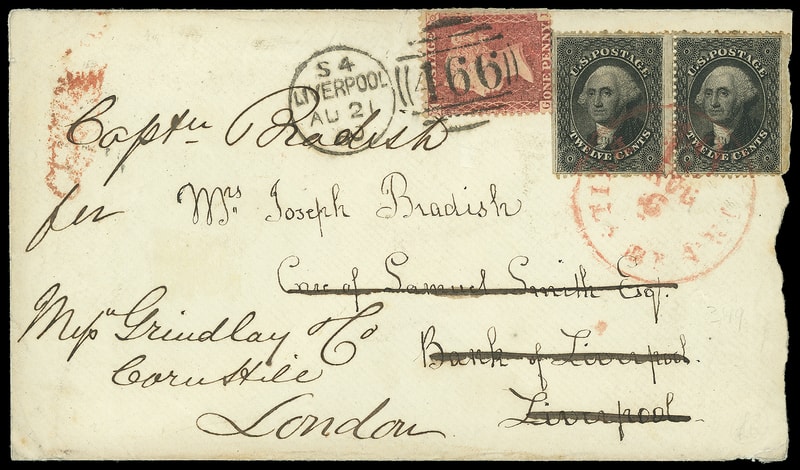 S4
LIVERPOOL
AU 21
466
GONE PENNY
U.S. POSTAGE
TWELVE CENTS
U.S. POSTAGE
TWELVE CENTS
AUG
Captn Bradish
for Mrs Joseph Bradish
Care of Samuel Smith Esq.
Bank of Liverpool.
Liverpool
Messrs Grindlay & Co
Cornhill
London